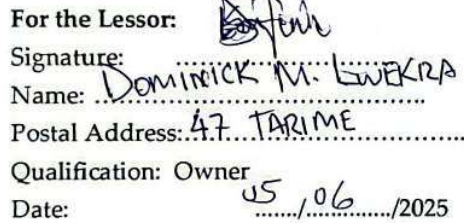 For the Lessor:
Signature:
Name: DOMINICK M. LWEKRA
Postal Address: 47 TARIME
Qualification: Owner
Date: 05/06/2025